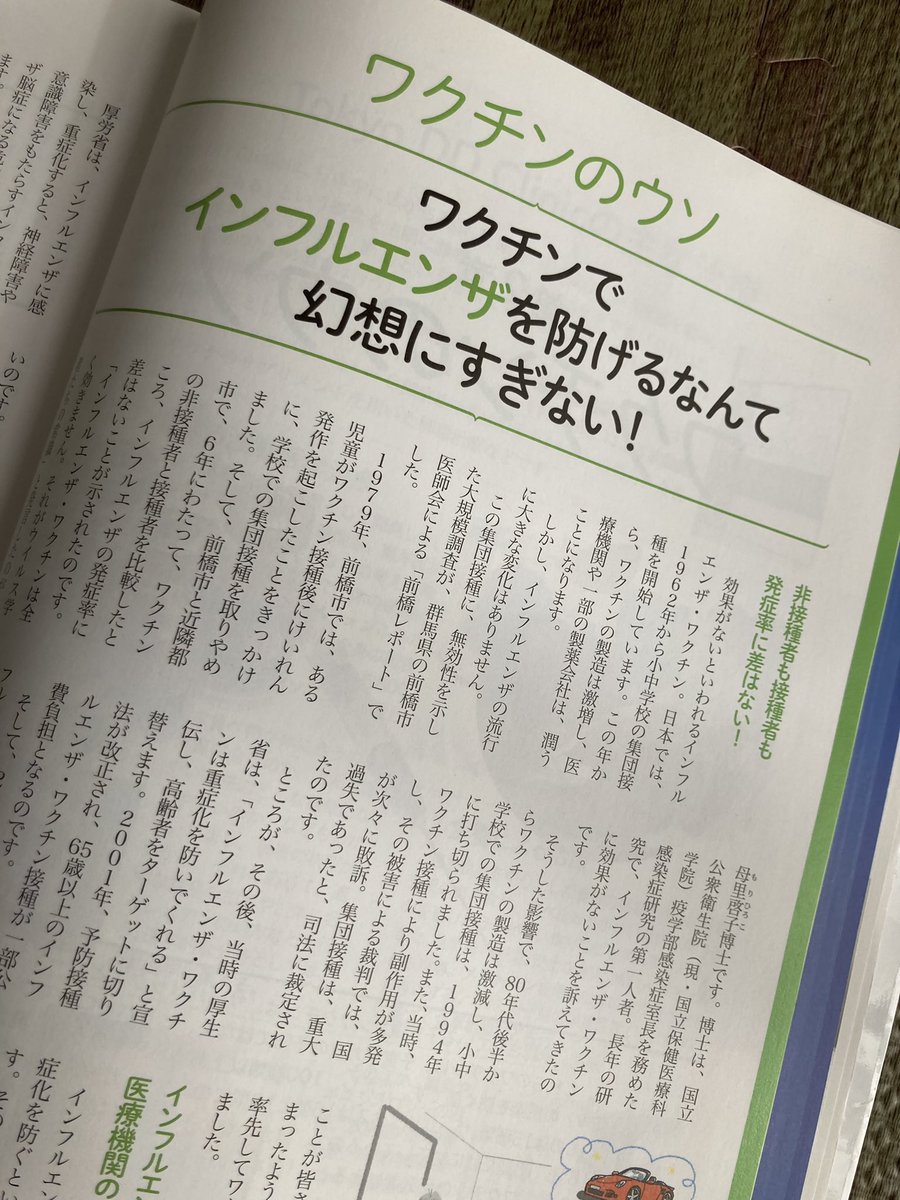 ワクチンのウソ
ワクチンで
インフルエンザを防げるなんて
幻想にすぎない!
非接種者も接種者も
発症率に差はない!
効果がないといわれるインフル
エンザ・ワクチン。日本では、
1962年から小中学校の集団接
種を開始しています。この年か
ら、ワクチンの製造は激増し、医
療機関や一部の製薬会社は、潤う
ことになります。
しかし、インフルエンザの流行
に大きな変化はありません。
この集団接種に、無効性を示し
た大規模調査が、群馬県の前橋市
医師会による「前橋レポート」で
した。
1979年、前橋市では、ある
児童がワクチン接種後にけいれん
発作を起こしたことをきっかけ
に、学校での集団接種を取りやめ
ました。そして、前橋市と近隣都
市で、6年にわたって、ワクチン
の非接種者と接種者を比較したと
ころ、インフルエンザの発症率に
差はないことが示されたのです。
「インフルエンザ・ワクチンは全
く効きません。それがウイルス学
母里啓子博士です。博士は、国立
もりひろこ
公衆衛生院(現・国立保健医療科
学院)疫学部感染症室長を務めた
感染症研究の第一人者。長年の研
究で、インフルエンザ・ワクチン
に効果がないことを訴えてきたの
です。
そうした影響で、80年代後半か
らワクチンの製造は激減し、小中
学校での集団接種は、1994年
に打ち切られました。また、当時、
ワクチン接種により副作用が多発
し、その被害による裁判では、国
が次々に敗訴。集団接種は、重大
過失であったと、司法に裁定され
たのです。
ところが、その後、当時の厚生
省は、「インフルエンザ・ワクチ
ンは重症化を防いでくれる」と宣
伝し、高齢者をターゲットに切り
替えます。2001年、予防接種
法が改正され、65歳以上のインフ
ルエンザ・ワクチン接種が一部公
費負担となるのです。
そして、2
フル
ことが皆さ
まったよう
率先してワ
ました。
インフルエン
医療機関の
インフルエン
症化を防ぐとい
す。
厚労省は、インフルエンザに感
染し、重症化すると、神経障害や
意識障害をもたらすインフ
ザ脳症になる
ます。
いのです。